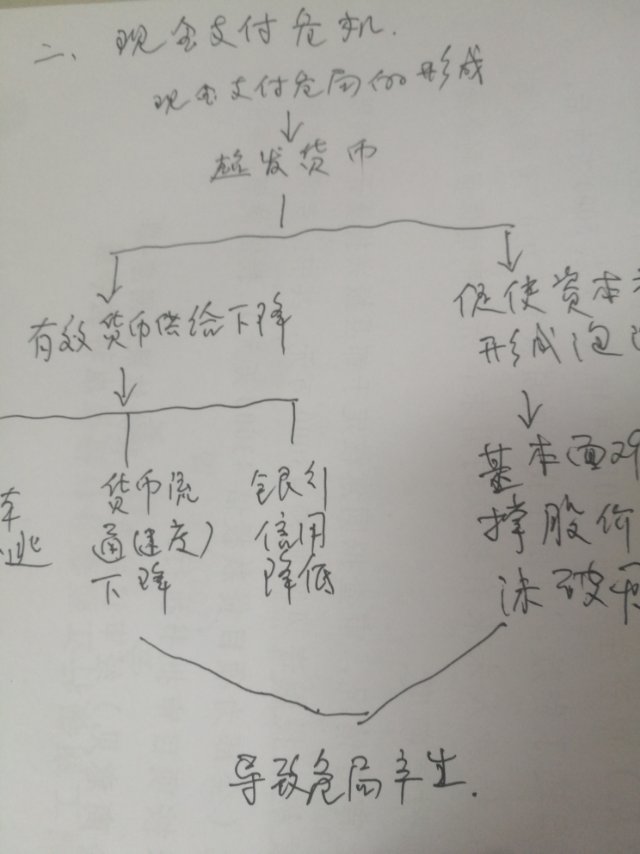 二、现金支付危机.
现金支付危局的形成
超发货币
有效货币供给下降
促使资本
形成泡
本
逃
货币流
通(速度)
下降
银行
信用
降低
基本面对
撑股价
沫破
导致危局产生.